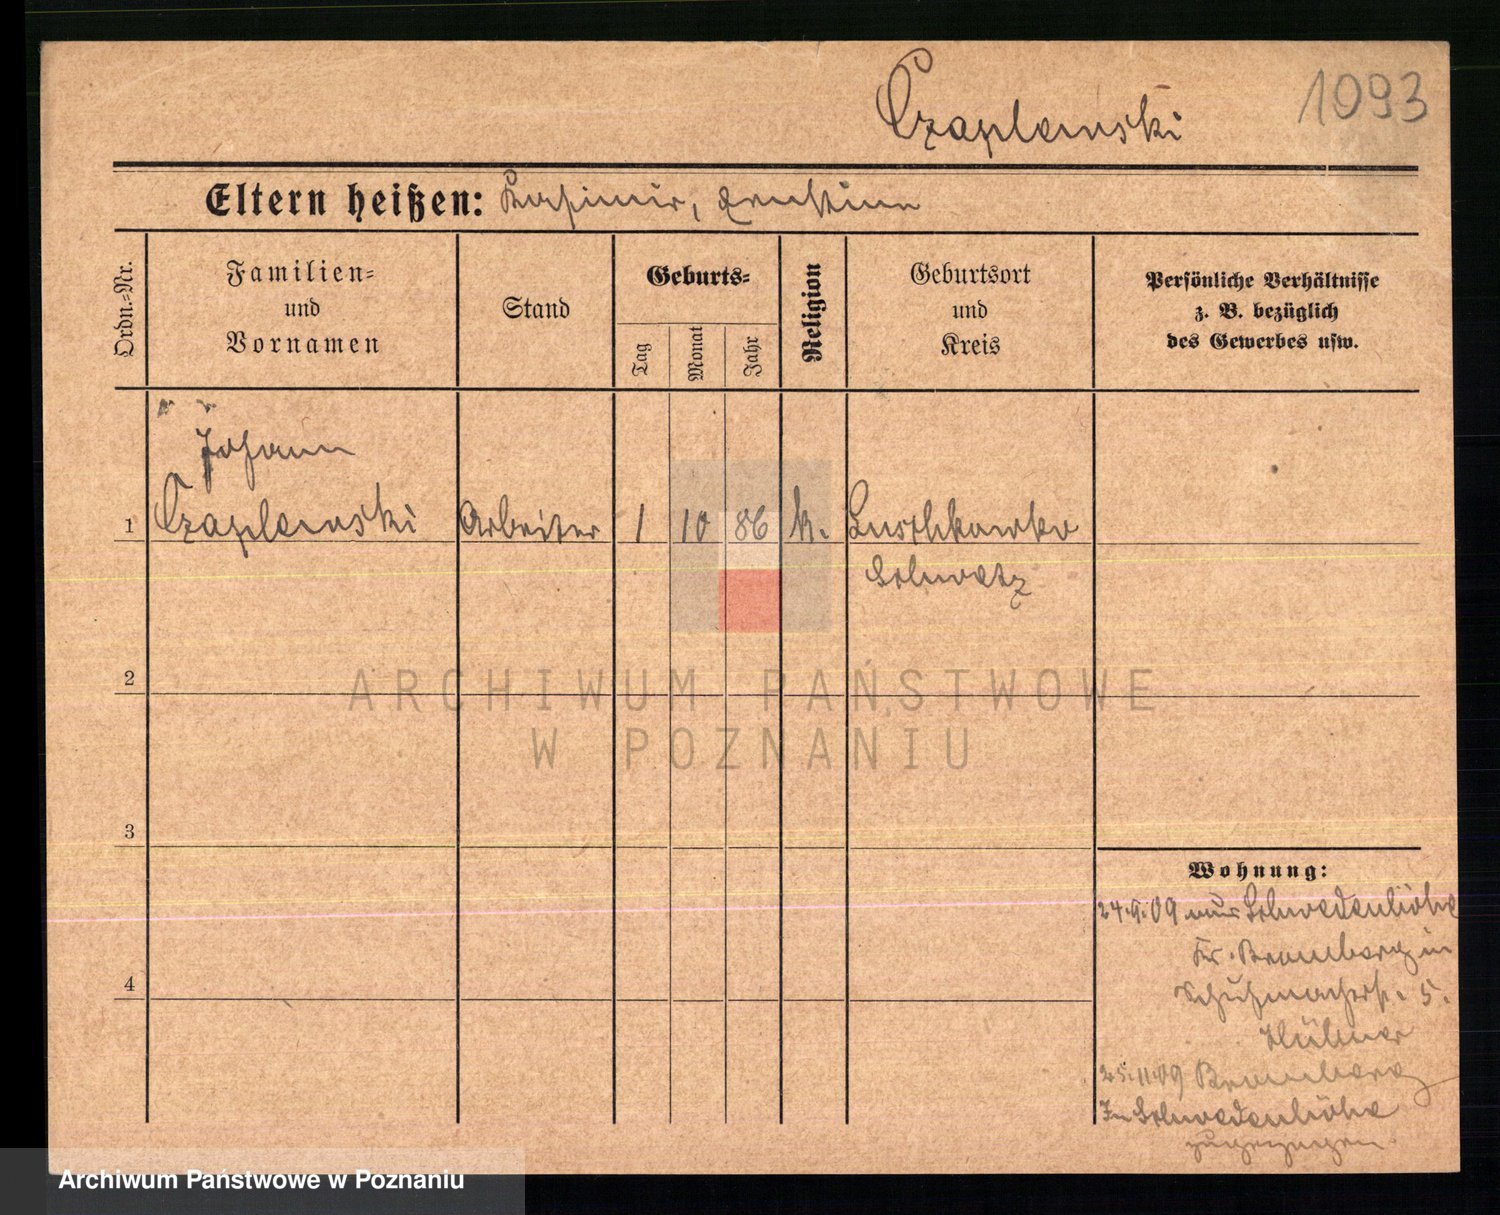 Czaplewski
1093
Eltern heißen: Kasimir, Ernstine
Ordn.-Nr.
Familien-
und
Vornamen
Stand
Geburts-
Tag
Monat
Jahr
Religion
Geburtsort
und
Kreis
Persönliche Verhältnisse
z. B. bezüglich
des Gewerbes usw.
Johann
1 Czaplewski Arbeiter 1 10 86 k. Luschkowko
Schwetz
2
ARCHIWUM PAŃSTWOWE
W POZNANIU
3
4
Wohnung:
24.9.09 aus Schwedenhöhe
Kr. Bromberg in
Schuhmacherst. 5.
Hübner
25.11.09 Bromberg
In Schwedenhöhe
zugezogen.
Archiwum Państwowe w Poznaniu